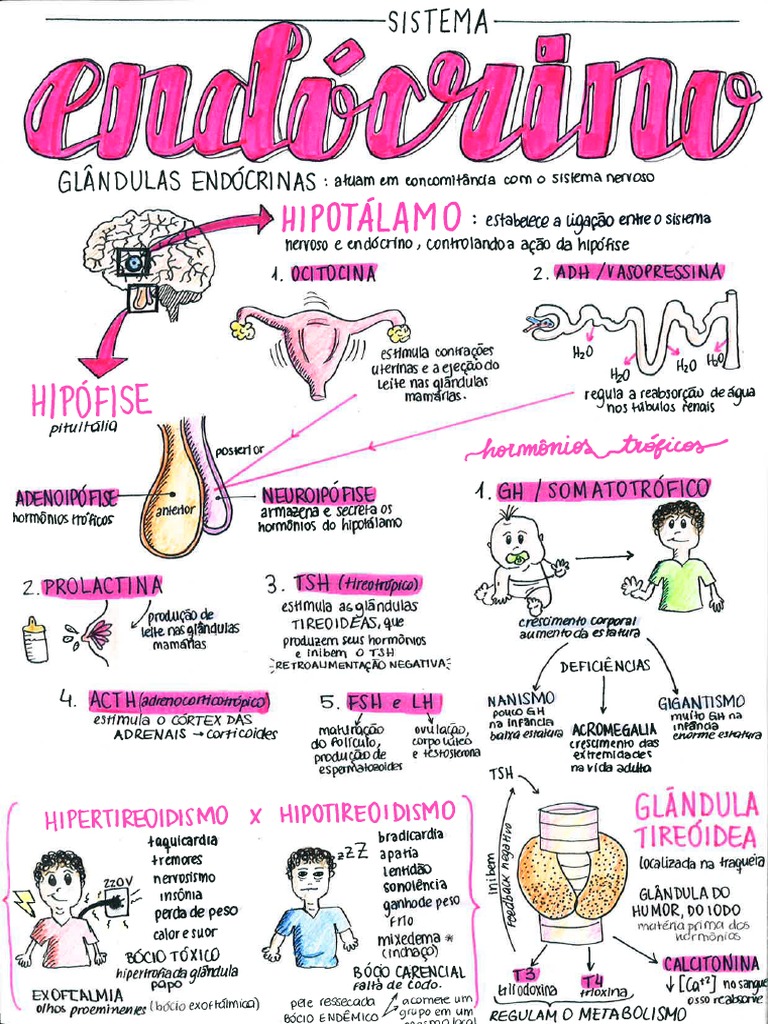 SISTEMA
endócrino
GLÂNDULAS ENDÓCRINAS : atuam em concomitância com o sistema nervoso
HIPOTÁLAMO : estabelece a ligação entre o sistema
nervoso e endócrino, controlando a ação da hipófise
1. OCITOCINA
estimula contrações
uterinas e a ejeção do
leite nas glândulas
mamárias.
2. ADH / VASOPRESSINA
H2O
H2O
H2O
H2O
regula a reabsorção de água
nos túbulos renais
HIPÓFISE
pituitália
posterior
anterior
ADENOIPÓFISE
hormônios tróficos
NEUROIPÓFISE
armazena e secreta os
hormônios do hipotálamo
hormônios tróficos
1. GH / SOMATOTRÓFICO
crescimento corporal
aumento da estatura
DEFICIÊNCIAS
NANISMO
pouco GH
na infância
baixa estatura
ACROMEGALIA
crescimento das
extremidades
na vida adulta
GIGANTISMO
muito GH na
infância
enorme estatura
2. PROLACTINA
produção de
leite nas glândulas
mamárias
3. TSH (tireotrópico)
estimula as glândulas
TIREOIDEAS, que
produzem seus hormônios
e inibem o TSH
RETROALIMENTAÇÃO NEGATIVA
4. ACTH (adrenocorticotrópico)
estimula o CÓRTEX DAS
ADRENAIS → corticoides
5. FSH e LH
maturação
do folículo,
produção de
espermatozoides
ovulação,
corpo lúteo
e testosterona
HIPERTIREOIDISMO X HIPOTIREOIDISMO
220V
taquicardia
tremores
nervosismo
insônia
perda de peso
calor e suor
BÓCIO TÓXICO
hipertrofia da glândula
papo
EXOFTALMIA
olhos proeminentes (bócio exoftálmica)
zzZZ
bradicardia
apatia
lentidão
sonolência
ganho de peso
frio
mixedema *
(inchaço)
BÓCIO CARENCIAL
falta de iodo.
pele ressecada
BÓCIO ENDÊMICO
acomete um
grupo em um
TSH
inibem
Feedback negativo
GLÂNDULA
TIREÓIDEA
localizada na traqueia
GLÂNDULA DO
HUMOR, DO IODO
matéria prima dos
hormônios
CALCITONINA
↓ [Ca+2] no sangue
osso reabsorve
T3
triiodoxina
T4
trioxina
REGULAM O METABOLISMO